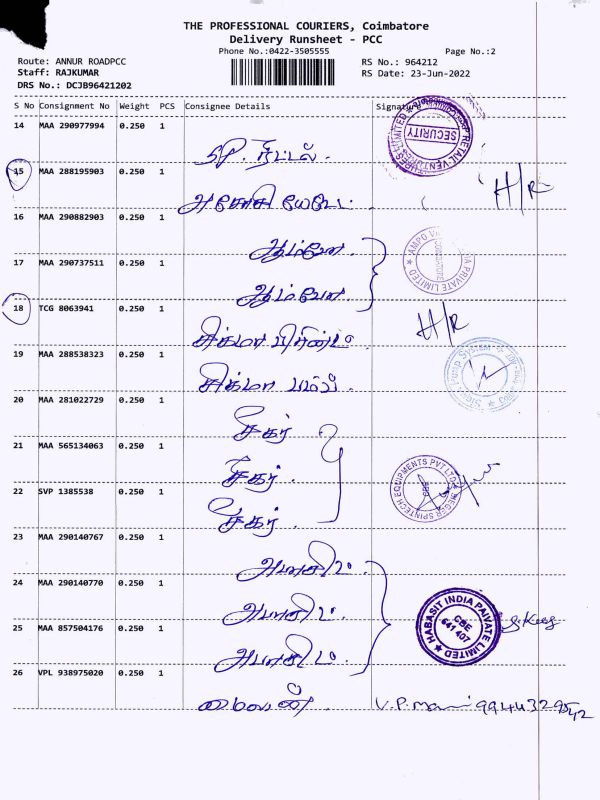 THE PROFESSIONAL COURIERS, Coimbatore
Delivery Runsheet - PCC
Phone No.:0422-3505555
Page No.:2
Route: ANNUR ROADPCC
RS No.: 964212
Staff: RAJKUMAR
RS Date: 23-Jun-2022
DRS No.: DCJB96421202
S No Consignment No Weight PCS Consignee Details Signature
14 MAA 290977994 0.250 1
SP. ரீட்டல்
SECURITY
15 MAA 288195903 0.250 1
அசோசியேட்
H/R
16 MAA 290882903 0.250 1
ஆம்போ
17 MAA 290737511 0.250 1
ஆம்போ
18 TCG 8063941 0.250 1
சிக்மா
H/R
19 MAA 288538323 0.250 1
சிக்மா பம்ப்
20 MAA 281022729 0.250 1
சீகர்
21 MAA 565134063 0.250 1
சீகர்
SPINTECH EQUIPMENTS PVT LTD
22 SVP 1385538 0.250 1
சீகர்
23 MAA 290140767 0.250 1
அபாசிட்
24 MAA 290140770 0.250 1
அபாசிட்
HABASIT INDIA PAIVATE LIMITED
CBE
641 407
25 MAA 857504176 0.250 1
அபாசிட்
26 VPL 938975020 0.250 1
V.P. Mani 9944329542